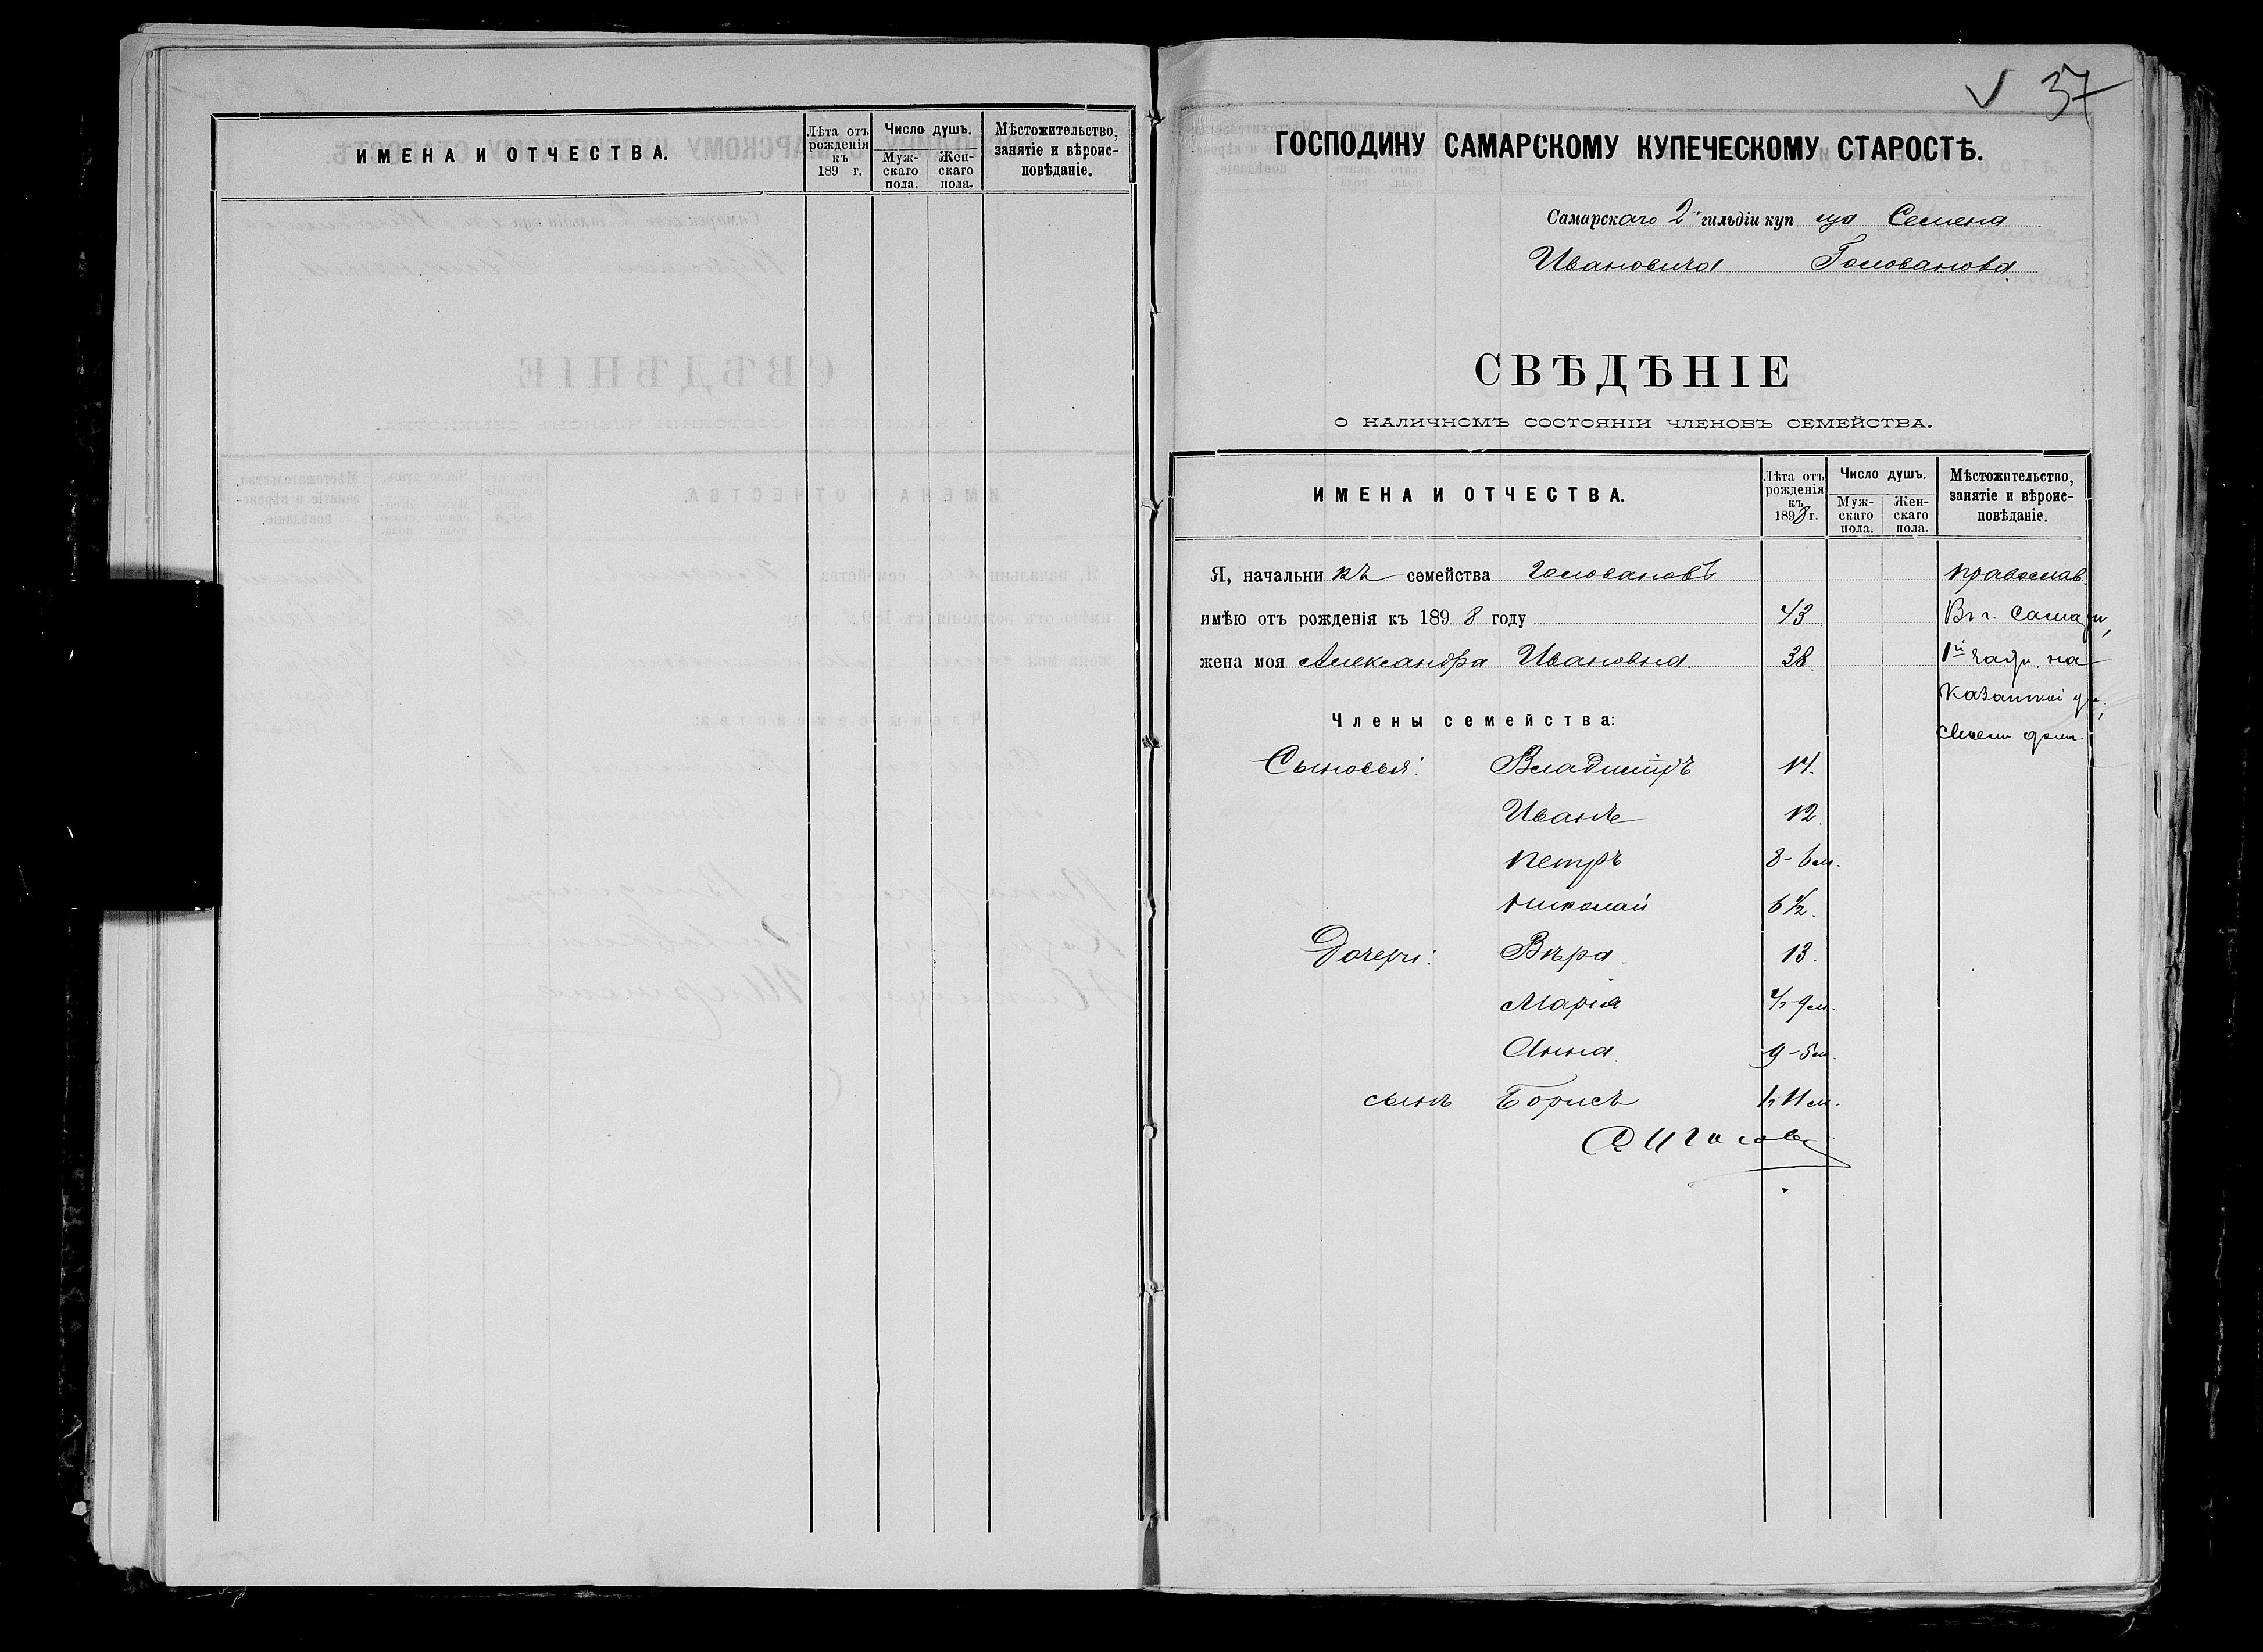 ИМЕНА И ОТЧЕСТВА.
Лѣта отъ рожденія къ 189 г.
Число душъ.
Мужскаго пола.
Женскаго пола.
Мѣстожительство, занятіе и вѣроисповѣданіе.
37
ГОСПОДИНУ САМАРСКОМУ КУПЕЧЕСКОМУ СТАРОСТѢ.
Самарскаго 2й гильдіи купца Семена
Ивановича Голованова
СВѢДѢНІЕ
О НАЛИЧНОМЪ СОСТОЯНІИ ЧЛЕНОВЪ СЕМЕЙСТВА.
ИМЕНА И ОТЧЕСТВА.
Лѣта отъ рожденія къ 1898 г.
Число душъ.
Мужскаго пола.
Женскаго пола.
Мѣстожительство, занятіе и вѣроисповѣданіе.
Я, начальникъ семейства Головановъ православ.
имѣю отъ рожденія къ 1898 году 43 Въ г. Самарѣ,
жена моя Александра Ивановна 38 1й части на
Казанской ул.,
Члены семейства:
своемъ домѣ.
Сыновья: Владиміръ 14.
Иванъ 12
Петръ 8-6 м.
Николай 6 1/2.
Дочери: Вѣра 13.
Марія
Анна 9-5 м.
сынъ Борисъ